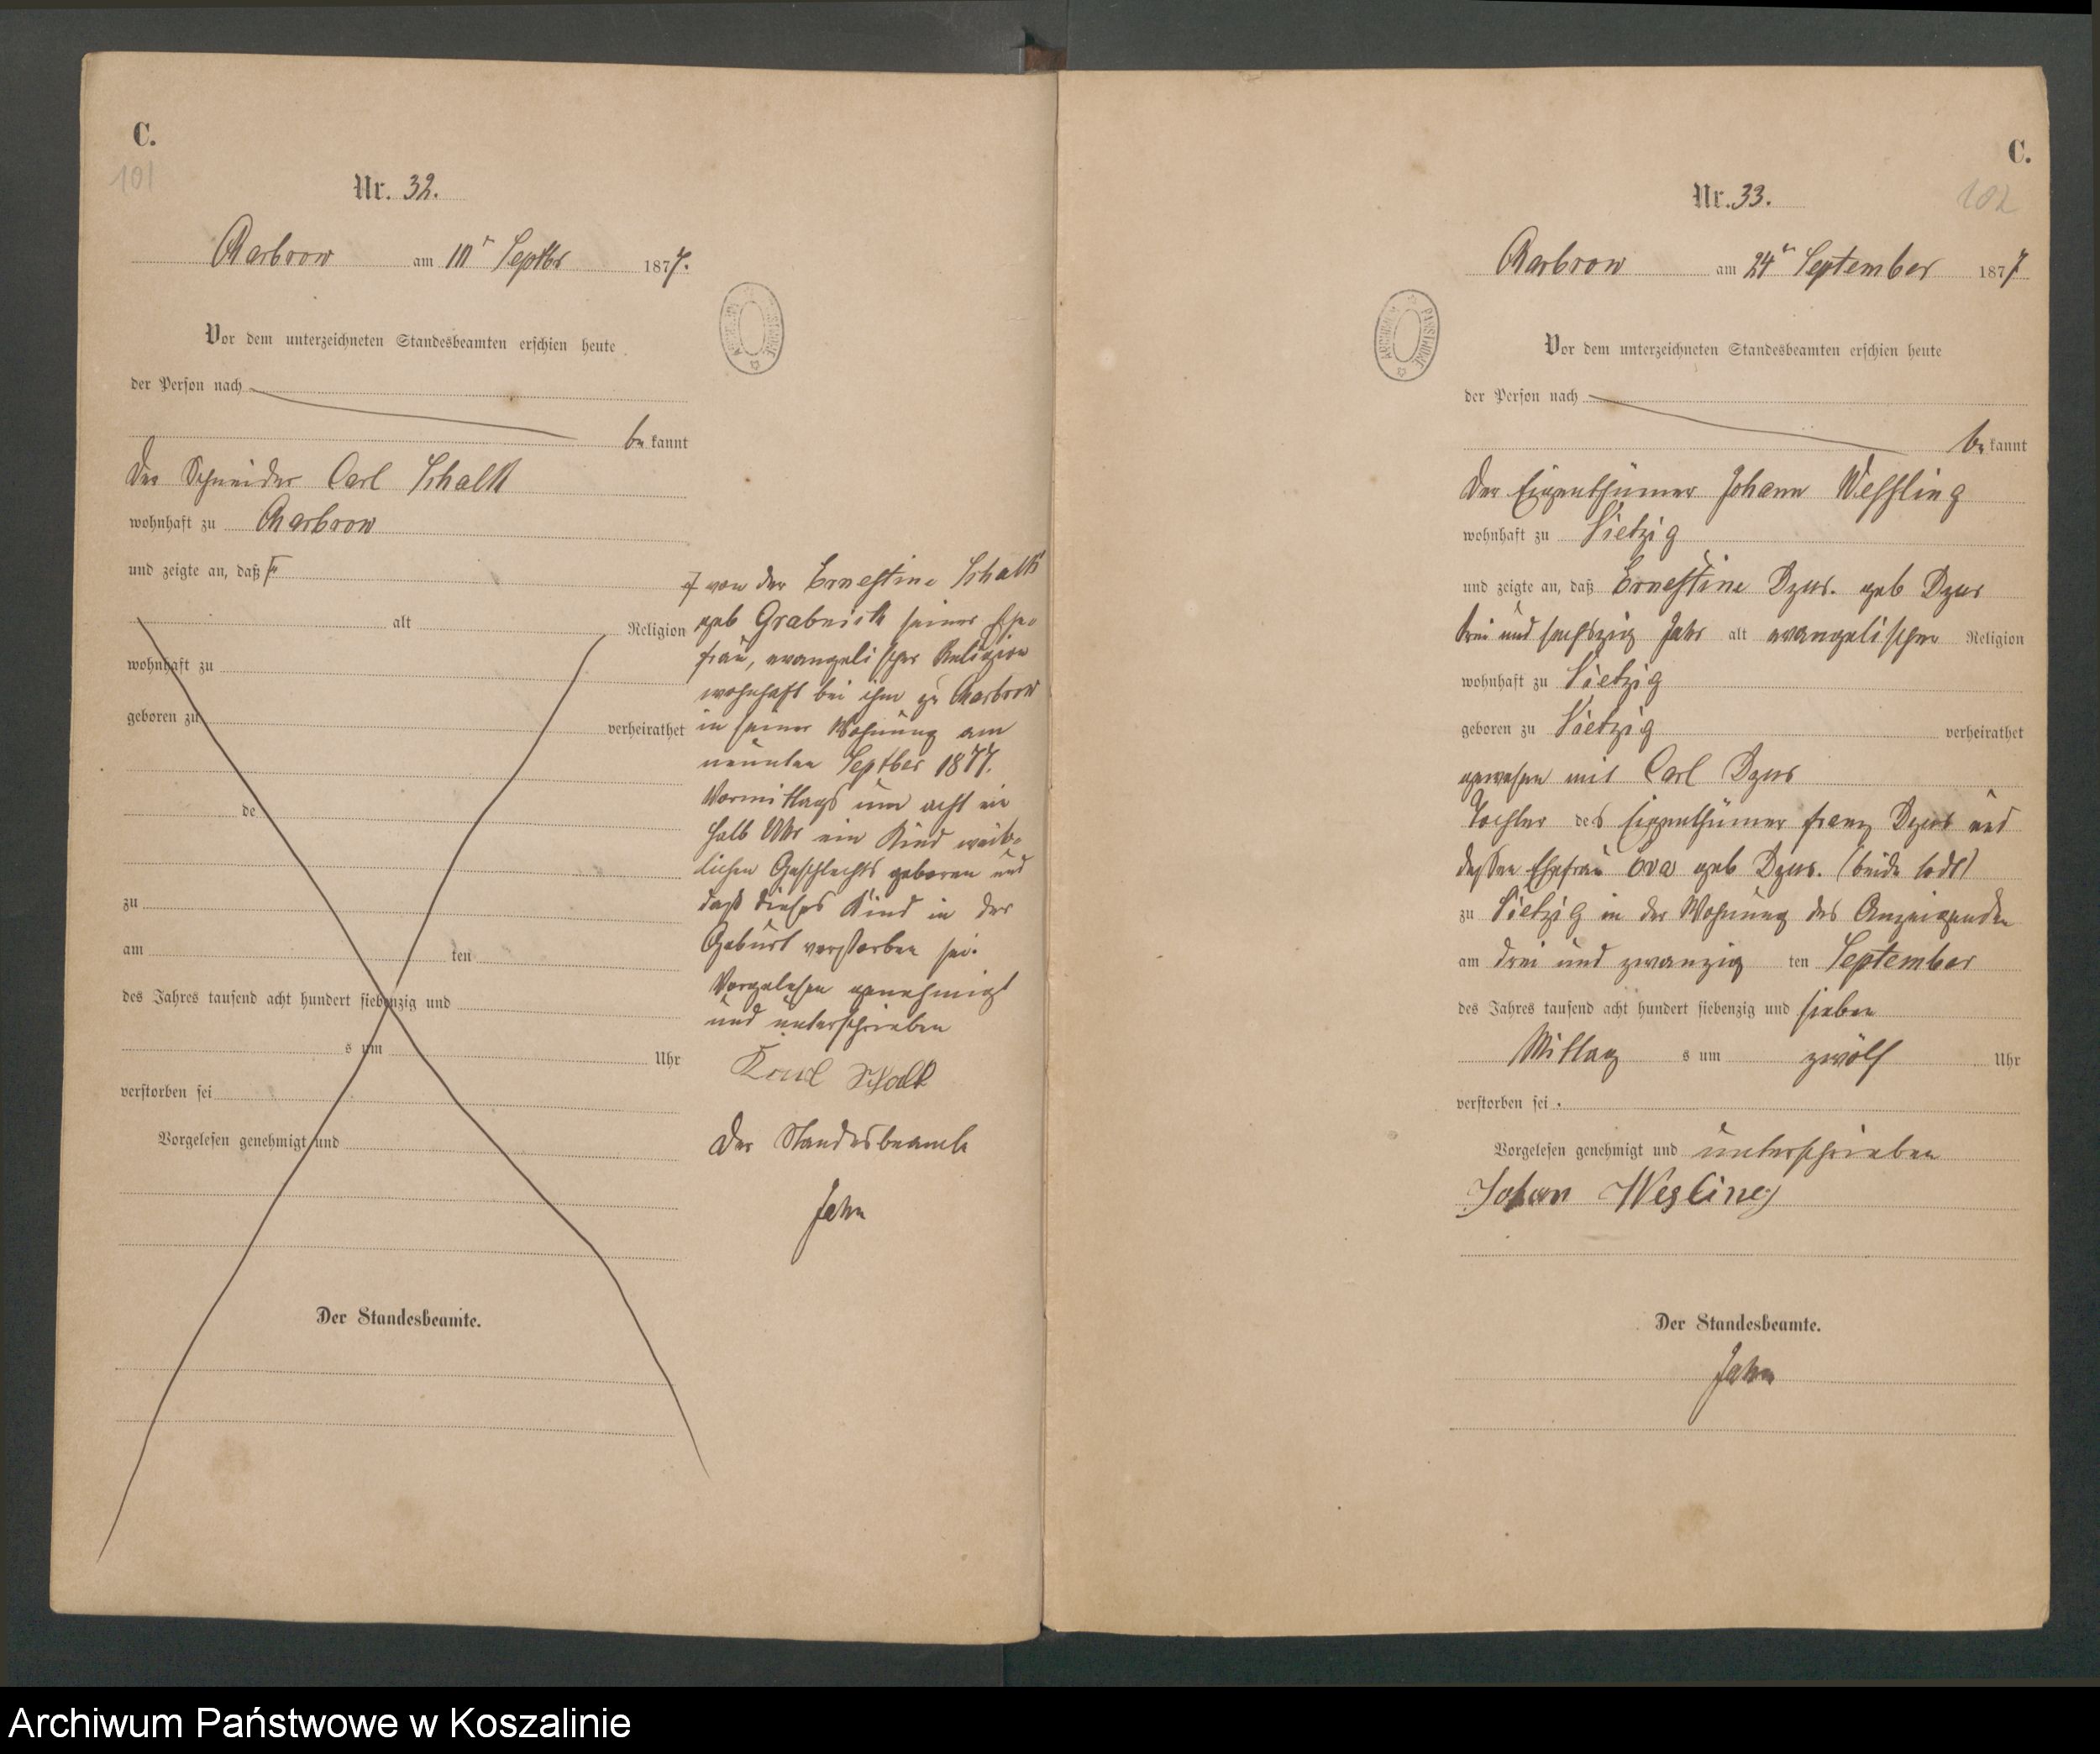 C.
101
Nr. 32.
Charbrow am 10t Septbr 1877.
Vor dem unterzeichneten Standesbeamten erschien heute
der Person nach
be kannt
Der Schneider Carl Schalk
wohnhaft zu Charbrow
und zeigte an, daß
alt Religion
wohnhaft zu
geboren zu verheirathet
de
zu
am ten
des Jahres tausend acht hundert siebenzig und
s um Uhr
verstorben sei
Vorgelesen genehmigt und
Der Standesbeamte.
von der Ernestine Schalk
geb seiner Ehe-
frau, evangelischer Religion
wohnhaft bei ihm zu Charbrow
in seiner Wohnung am
neunten Septber 1877.
Vormittags um acht ein
halb Uhr ein Kind weib-
lichen Geschlechts geboren und
daß dieses Kind in der
Geburt verstorben sei.
Vorgelesen genehmigt
und unterschrieben
Karl Schalk
Der Standesbeamte
Jahn
C.
102
Nr. 33.
Charbrow am 24t September 1877
Vor dem unterzeichneten Standesbeamten erschien heute
der Person nach
be kannt
Der Eigenthümer Johann Wessling
wohnhaft zu Vietzig
und zeigte an, daß Ernestine Dzus. geb Dzus
drei und sechszig Jahr alt evangelischer Religion
wohnhaft zu Vietzig
geboren zu Vietzig verheirathet
gewesen mit Carl Dzus
Tochter des Eigenthümer Franz Dzus und
dessen Ehefrau Eva geb Dzus. (beide todt)
zu Vietzig in der Wohnung des Anzeigenden
am drei und zwanzig ten September
des Jahres tausend acht hundert siebenzig und sieben
Mittag s um zwölf Uhr
verstorben sei.
Vorgelesen genehmigt und unterschrieben
Johan Wesling
Der Standesbeamte.
Jahn
Archiwum Państwowe w Koszalinie